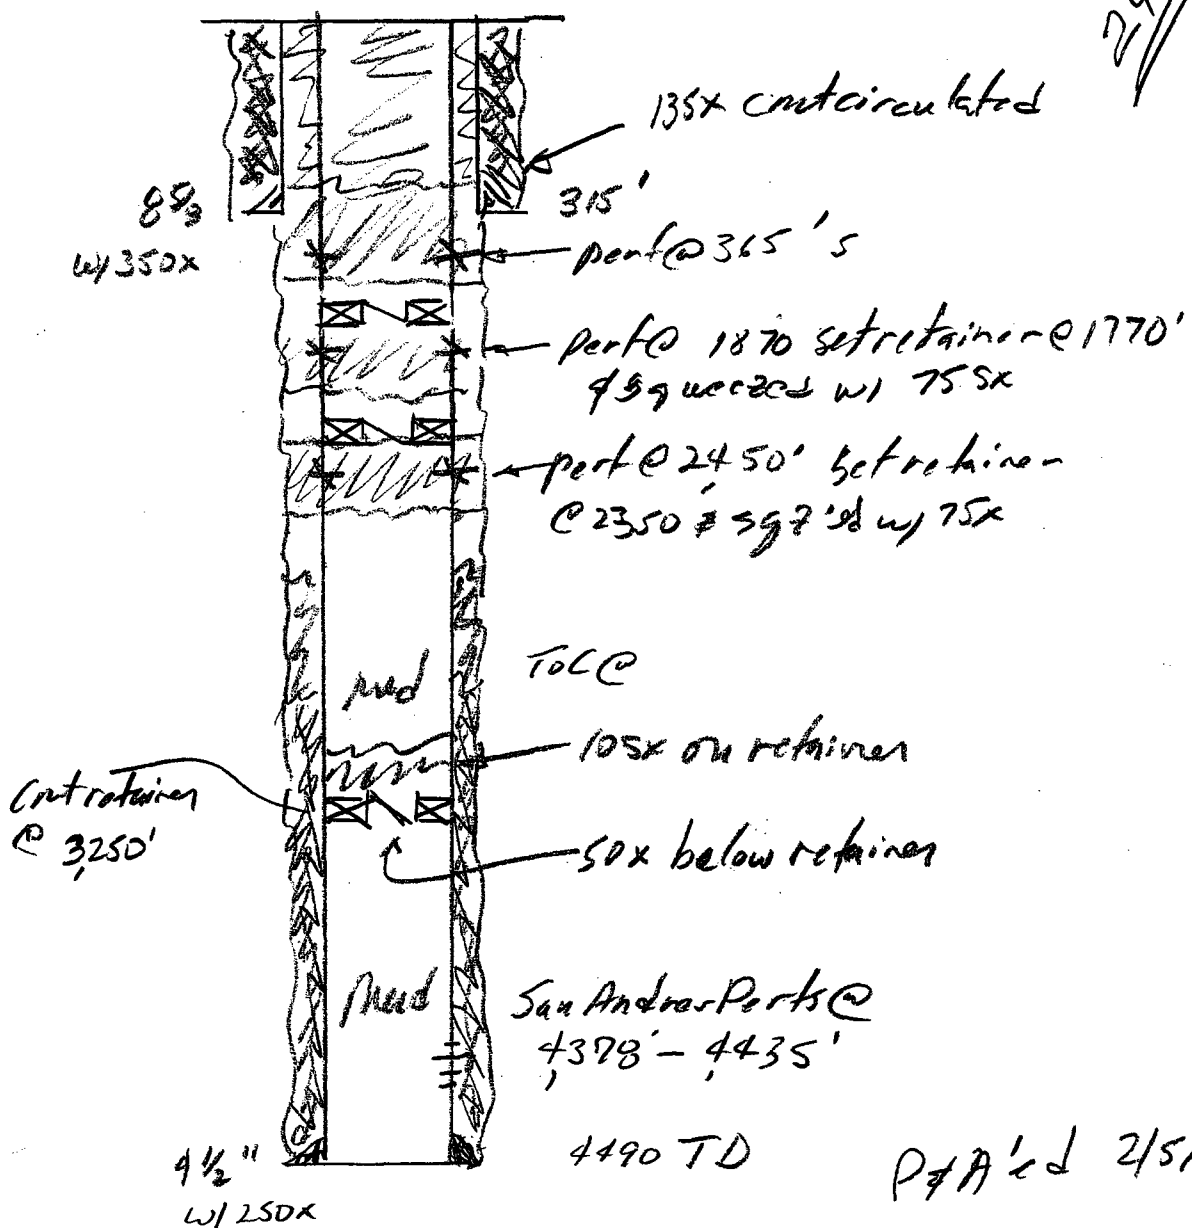 135x cmtcirculated
8 5/8
w/ 350x
315'
perf@ 365's
perf@ 1870 set retainer @ 1770'
& squeezed w/ 75sx
perf @ 2450' set retainer
@ 2350 & sqz'ed w/ 75x
mud
TOC @
105x on retainer
Cmt retainer
@ 3,250'
50x below retainer
Mud
San Andres Perfs @
4,378' - 4,435'
4 1/2"
w/ 250x
4490 TD
P&A'ed 2/5/